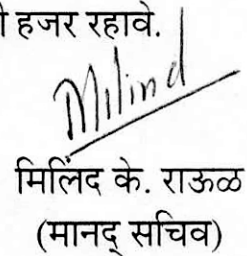 हजर रहावे.
Milind
मिलिंद के. राऊळ
(मानद् सचिव)